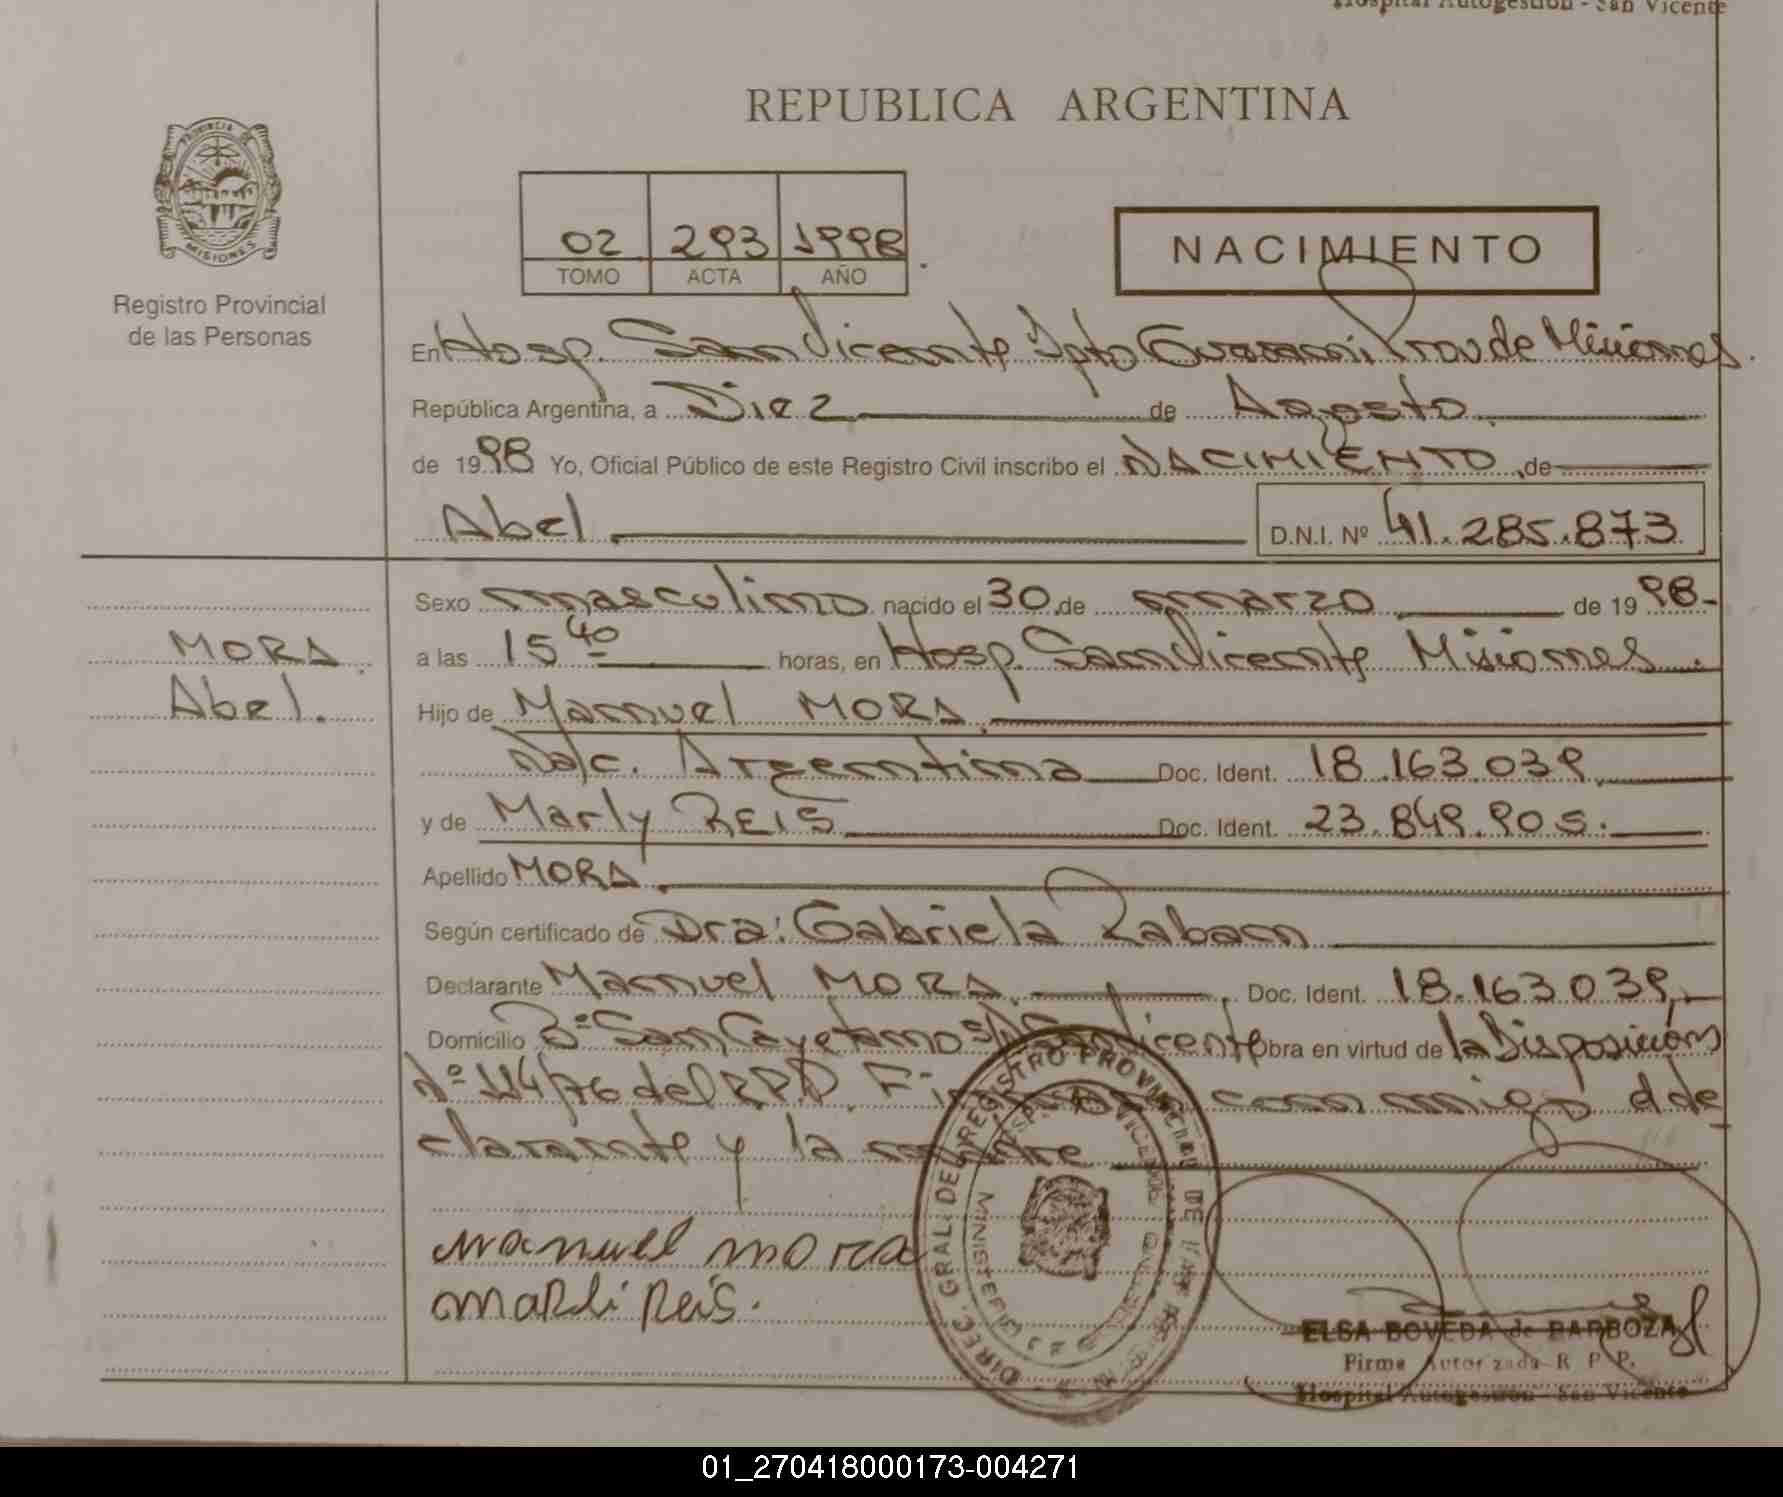 Hospital Autogestión - San Vicente
REPUBLICA ARGENTINA
PROVINCIA DE
MISIONES
Registro Provincial
de las Personas
02 293 1998
TOMO ACTA AÑO
NACIMIENTO
En Hosp. San Vicente Dpto Guaraní Prov de Misiones.
República Argentina, a Diez de Agosto
de 1998 Yo, Oficial Público de este Registro Civil inscribo el NACIMIENTO de
Abel D.N.I. Nº 41.285.873
Sexo masculino nacido el 30 de marzo de 1998-
MORA
Abel.
a las 15 40 horas, en Hosp. San Vicente Misiones.
Hijo de Manuel MORA
Nac. Argentina Doc. Ident. 18.163.039
y de Marly REIS Doc. Ident. 23.849.905.
Apellido MORA.
Según certificado de Dra: Gabriela Zaban
Declarante Manuel MORA. Doc. Ident. 18.163.039
Domicilio Bº San Cayetano S/N San Vicente obra en virtud de la Disposición
Nº 114/76 del R.P.P. Firman conmigo el de
clarante y la madre
manuel mora
marli Reis.
DIREC. GRAL. DE REGISTRO PROVINCIAL DE LAS
ELSA BOVEDA de BARBOZA
Firma Autorizada R. P. P.
Hospital Autogestión - San Vicente
01_270418000173-004271